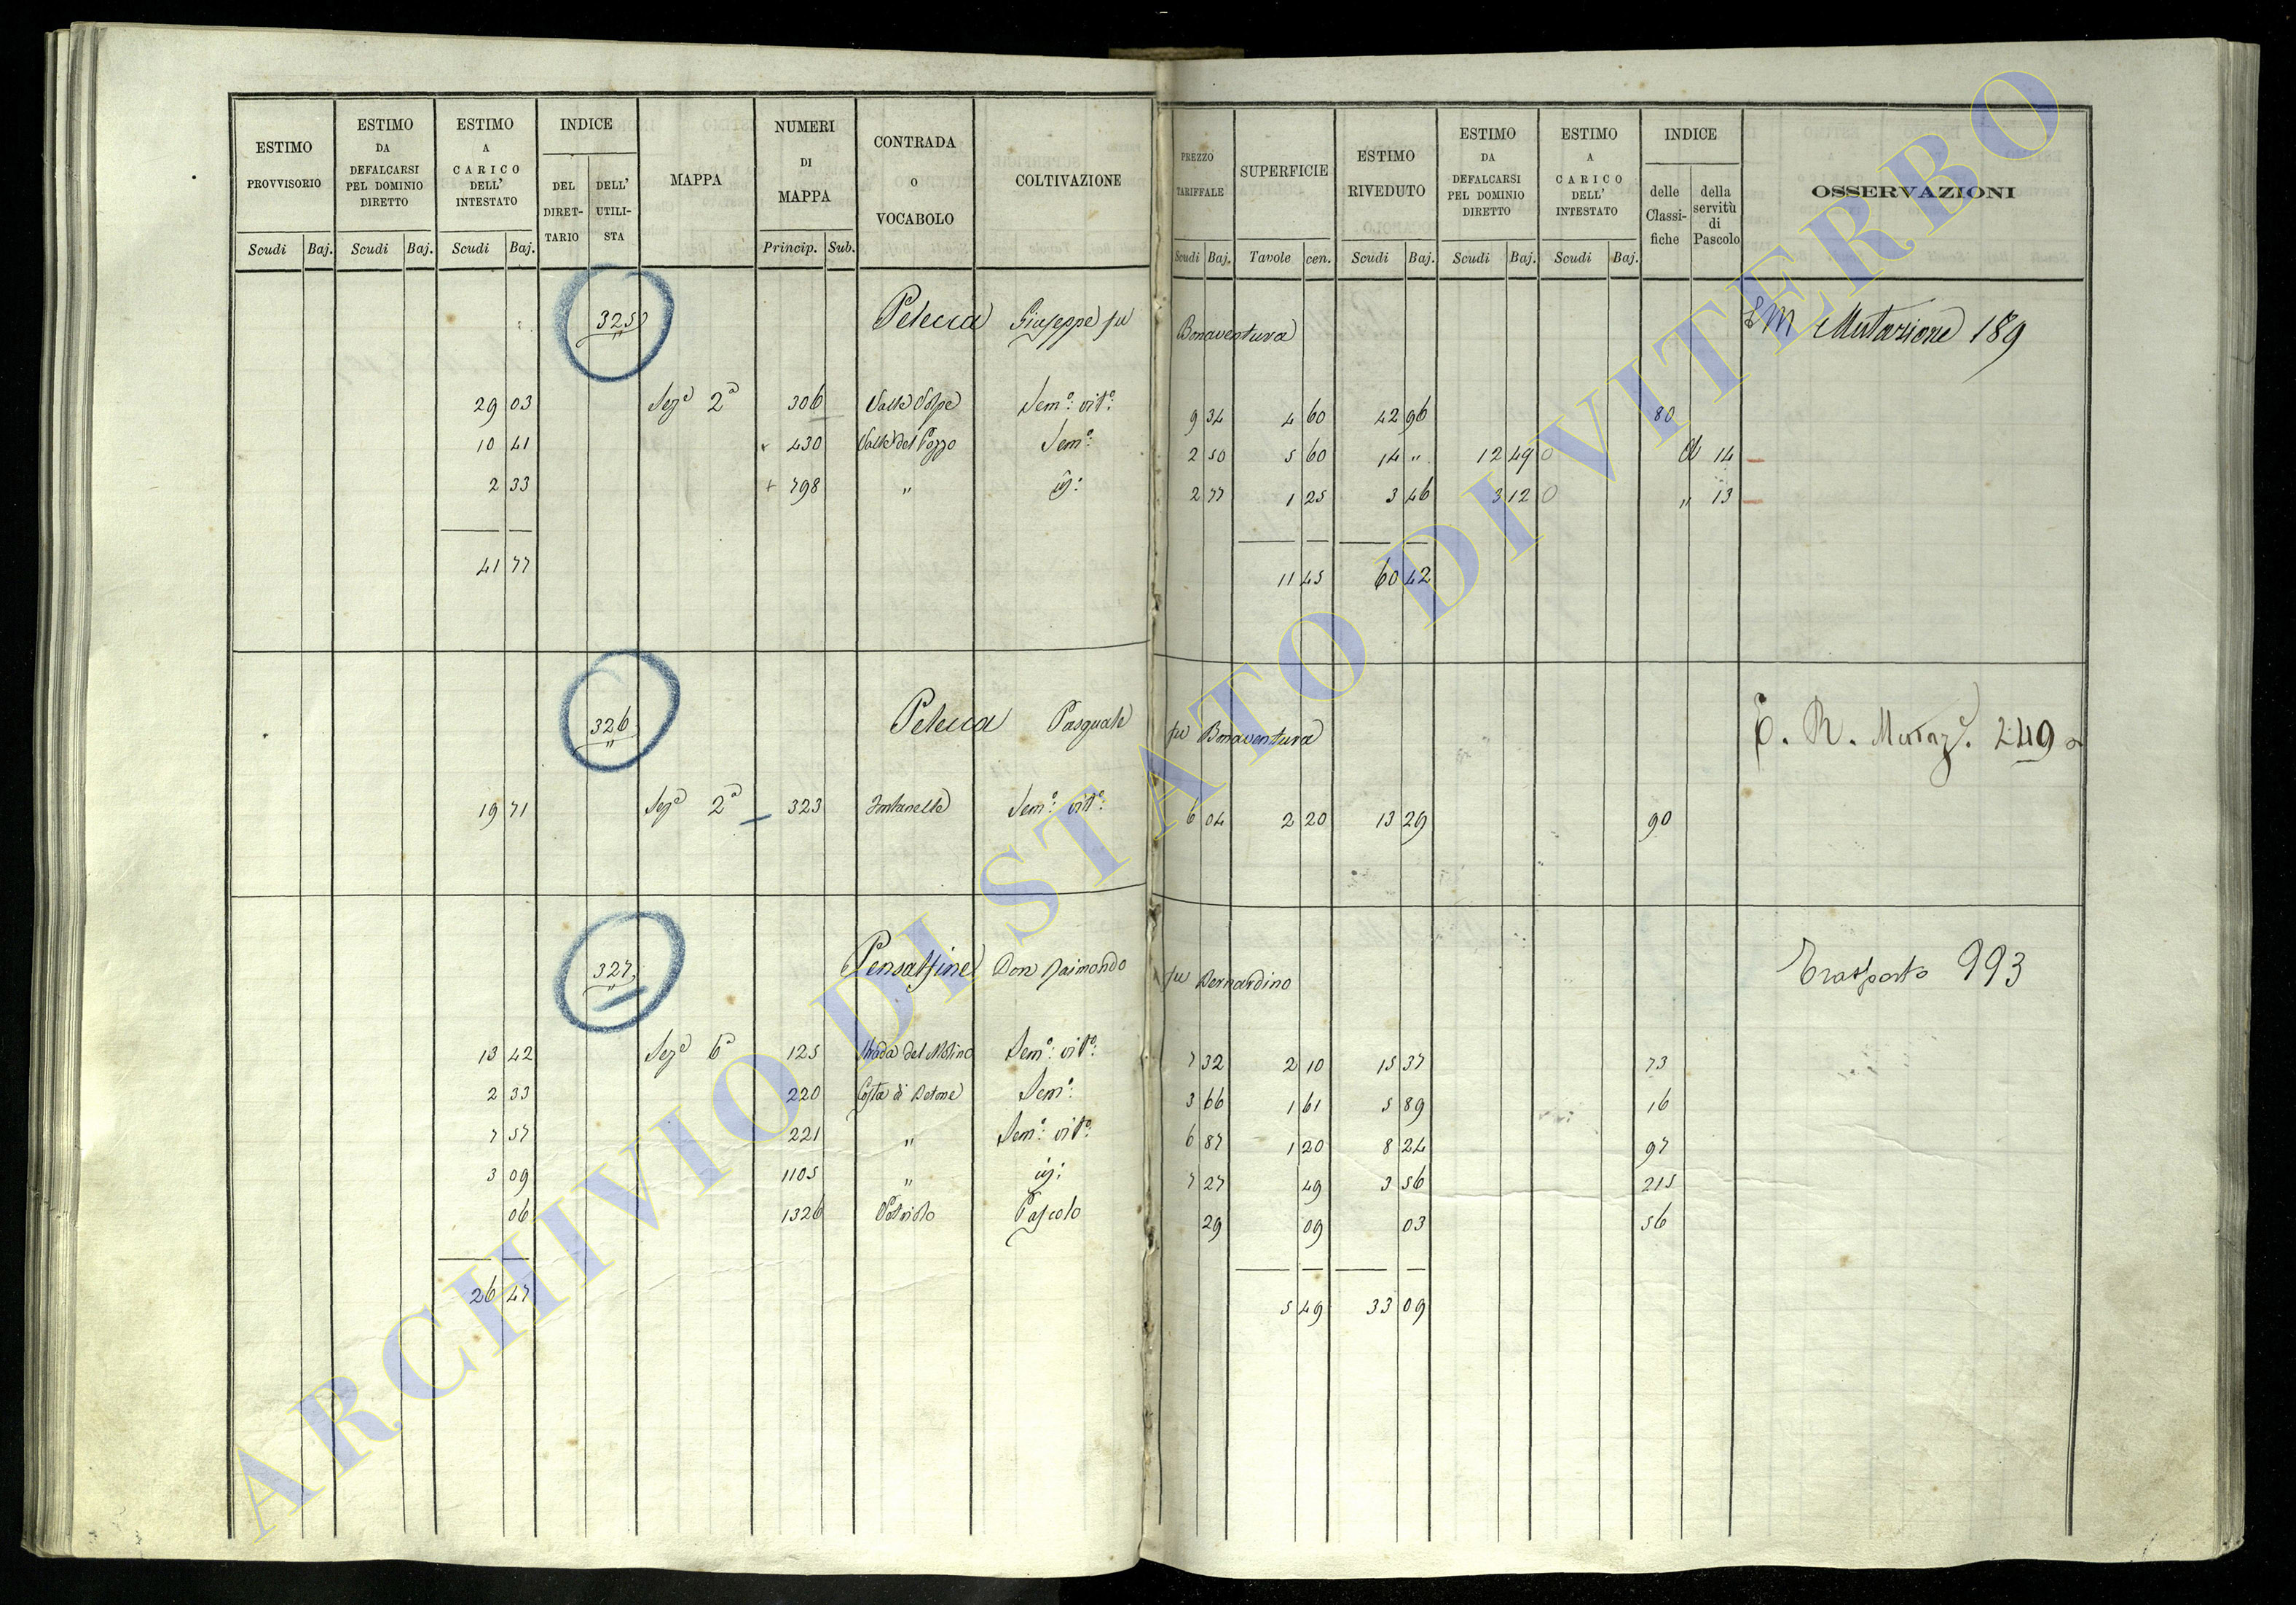 ESTIMO PROVVISORIO | ESTIMO DA DEFALCARSI PEL DOMINIO DIRETTO | ESTIMO A CARICO DELL' INTESTATO | INDICE | MAPPA | NUMERI DI MAPPA | CONTRADA O VOCABOLO | COLTIVAZIONE | PREZZO TARIFFALE | SUPERFICIE | ESTIMO RIVEDUTO | ESTIMO DA DEFALCARSI PEL DOMINIO DIRETTO | ESTIMO A CARICO DELL' INTESTATO | INDICE | OSSERVAZIONI
DEL DIRETTARIO | DELL' UTILISTA | delle Classifiche | della servitù di Pascolo
Scudi Baj. | Scudi Baj. | Scudi Baj. | Princip. Sub. | Scudi Baj. | Tavole cen. | Scudi Baj. | Scudi Baj. | Scudi Baj.
325 Pelecca Giuseppe fu Bonaventura Mutazione 189
29 03 Sez.e 2a 306 Sem.o vit.o: 9 34 4 60 42 96 80
10 41 430 Valle del Pozzo Sem.o: 2 50 5 60 14 " 12 49 0 A 14
2 33 798 " 2 77 1 25 3 46 3 12 0 " 13
41 77 11 45 60 42
326 Pelecca Pasquale fu Bonaventura E. R. Mutaz.e 249
19 71 Sez.e 2a 323 Fontanelle Sem.o: vit.o: 6 04 2 20 13 29 90
327 Pensaffine Don Raimondo fu Bernardino Trasporto 993
13 42 Sez.e 6a 125 Strada del Molino Sem.o: vit.o: 7 32 2 10 15 37 73
2 33 220 Costa di Sem.o: 3 66 1 61 5 89 16
7 57 221 " Sem.o: vit.o: 6 87 1 20 8 24 97
3 09 1105 " 7 27 49 3 56 215
06 1326 Pascolo 29 09 03 56
26 47 5 49 33 09
ARCHIVIO DI STATO DI VITERBO